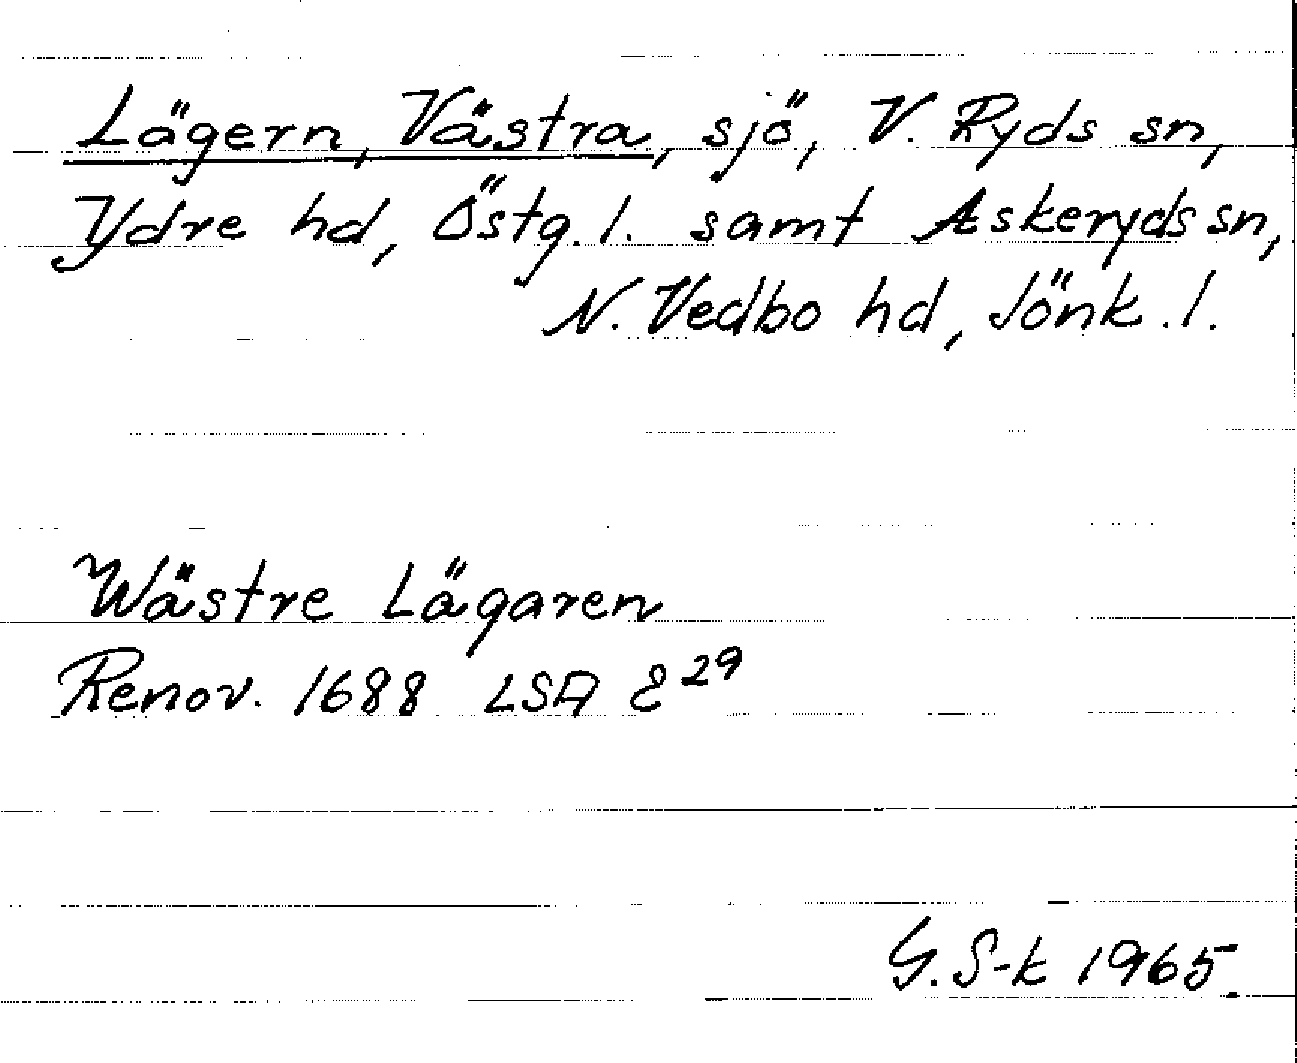 Lägern, Västra, sjö, V. Ryds sn,
Ydre hd, Östg. l. samt Askeryds sn,
N. Vedbo hd, Jönk. l.
Wästre Lägaren
Renov. 1688 LSA E 29
G. S-k 1965.